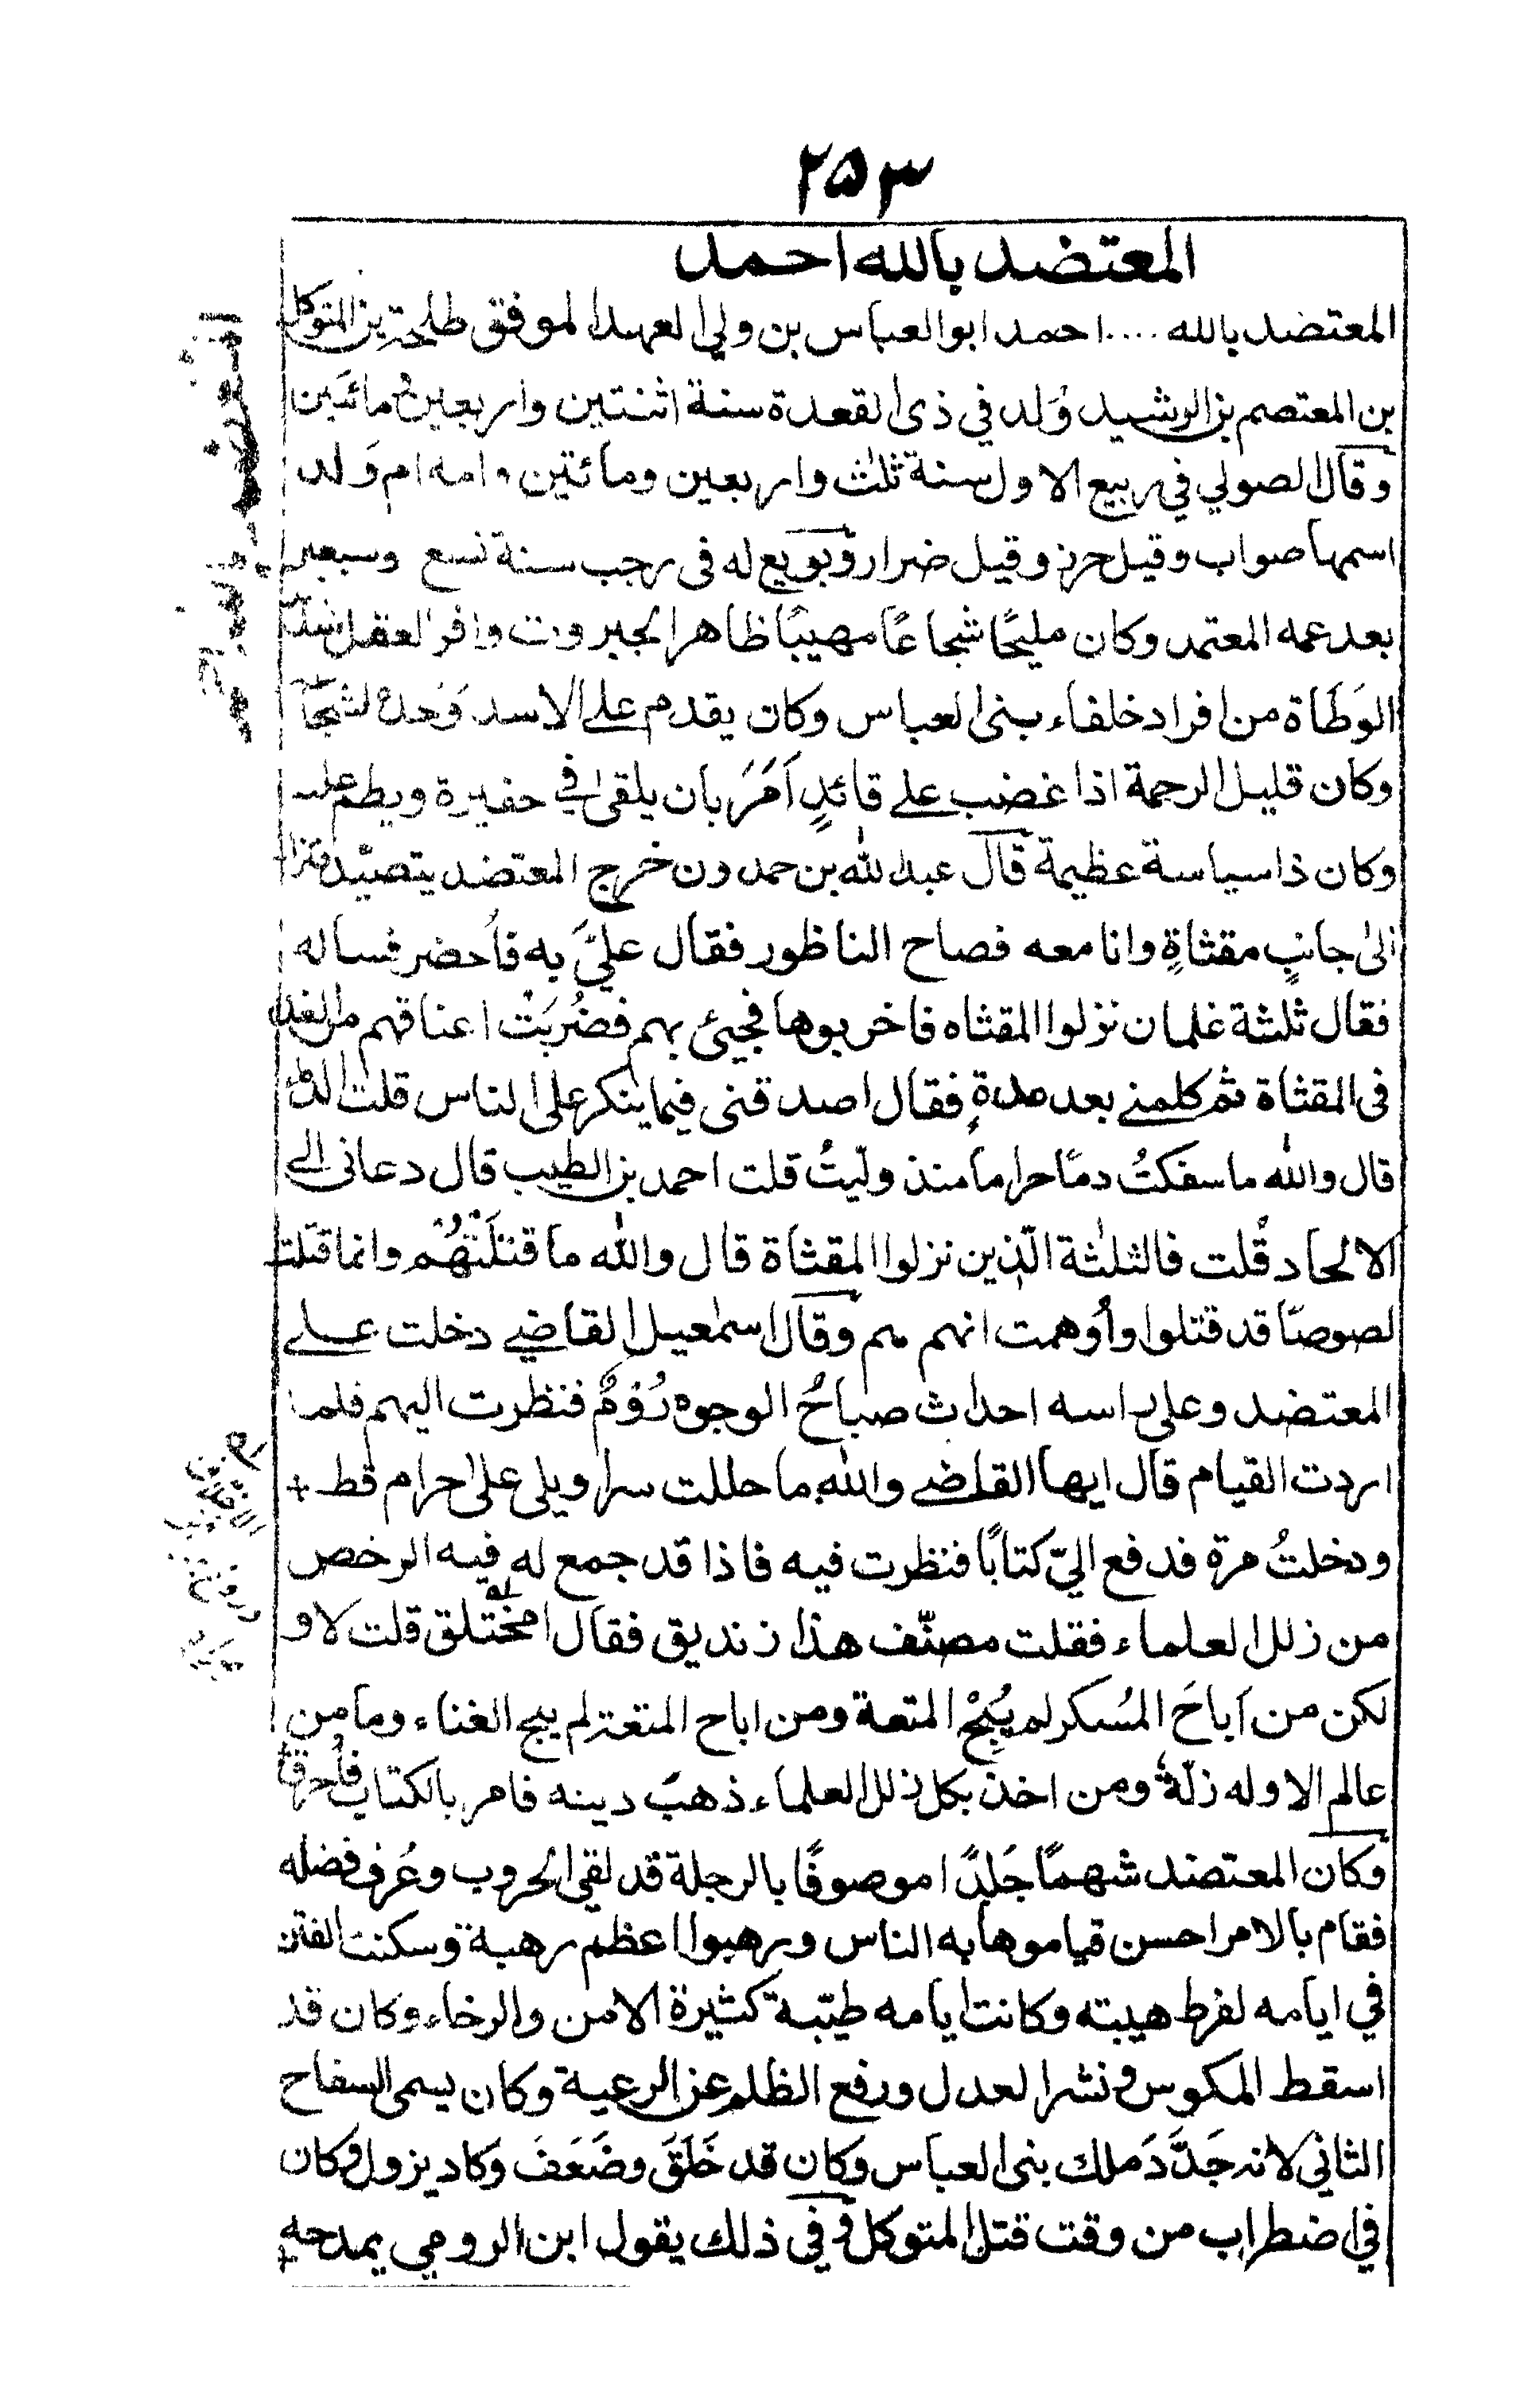 ۲۵۳
المعتضد بالله احمد
المعتضد بالله .... احمد ابو العباس بن ولي العهد الموفق طلحة بن المتوكل
بن المعتصم بن الرشيد وُلد في ذى القعدة سنة اثنتين واربعين ومائتين
وقال الصولي في ربيع الاول سنة ثلٰث واربعين ومائتين وامه ام وَلد
اسمها صواب وقيل حرز وقيل ضرار وبويع له فى رجب سنة تسع وسبعين
بعد عمه المعتمد وكان مليحًا شجاعًا مهيبًا ظاهر الجبروت وافر العقل شديد
الوَطَاة من افراد خلفاء بنى العباس وكان يقدم على الاسد وَحده لشجاعته
وكان قليل الرحمة اذا غضب على قائدٍ اَمَرَ بان يلقىٰ في حفيرة ويطم عليه
وكان ذا سياسة عظيمة قال عبد الله بن حمدون خرج المعتضد يتصيّد فنزل
الىٰ جانبٍ مقثاةٍ وانا معه فصاح الناظور فقال عليَّ به فاُحضر فساله
فقال ثلٰثة غلمان نزلوا المقثاه فاخربوها فجيئ بهم فضُرِبَتْ اعناقهم من الغد
فى المقثاة ثم كلمنى بعد مدةٍ فقال اصدقنى فيما ينكر على الناس قلت الدماء
قال والله ما سفكتُ دمًا حراما منذ ولّيتُ قلت احمد بن الطيب قال دعانى الى
الالحاد قُلت فالثلٰثة الّذين نزلوا المقثاة قال والله ما قتلتُهُم وانما قتلت
لصوصًا قد قتلوا واُوهمت انهم هم وقال اسمٰعيل القاضي دخلت على
المعتضد وعلى راسه احداث صباحُ الوجوه رُوْمٌ فنظرت اليهم فلما
اردت القيام قال ايها القاضي والله ما حللت سراويلى علىٰ حرام قط +
ودخلتُ مرة فدفع اليّ كتابًا فنظرت فيه فاذا قد جمع له فيه الرخص
من زلل العلماء فقلت مصنّف هذا زنديق فقال امختلق قلت لا و
لكن من اَباحَ المُسكر لم يُبِحْ المتعة ومن اباح المتعة لم يبح الغناء وما من
عالم الا وله زلّة ومن اخذ بكل زلل العلماء ذهب دينه فامر بالكتاب فاُحرق
وكان المعتضد شهمًا جَلدًا موصوفًا بالرجلة قد لقى الحروب وعُرف فضله
فقام بالامر احسن قيام وهابه الناس ورهبوا اعظم رهبة وسكنت الفتن
في ايامه لفرط هيبته وكانت ايامه طيّبة كثيرة الامن والرخاء وكان قد
اسقط المكوس ونشر العدل ورفع الظلم عن الرعية وكان يسمى السفاح
الثاني لانه جَدَّدَ ملك بنى العباس وكان قد خَلَقَ وضَعَفَ وكاد يزول وكان
في اضطراب من وقت قتل المتوكل وفي ذلك يقول ابن الرومي يمدحه